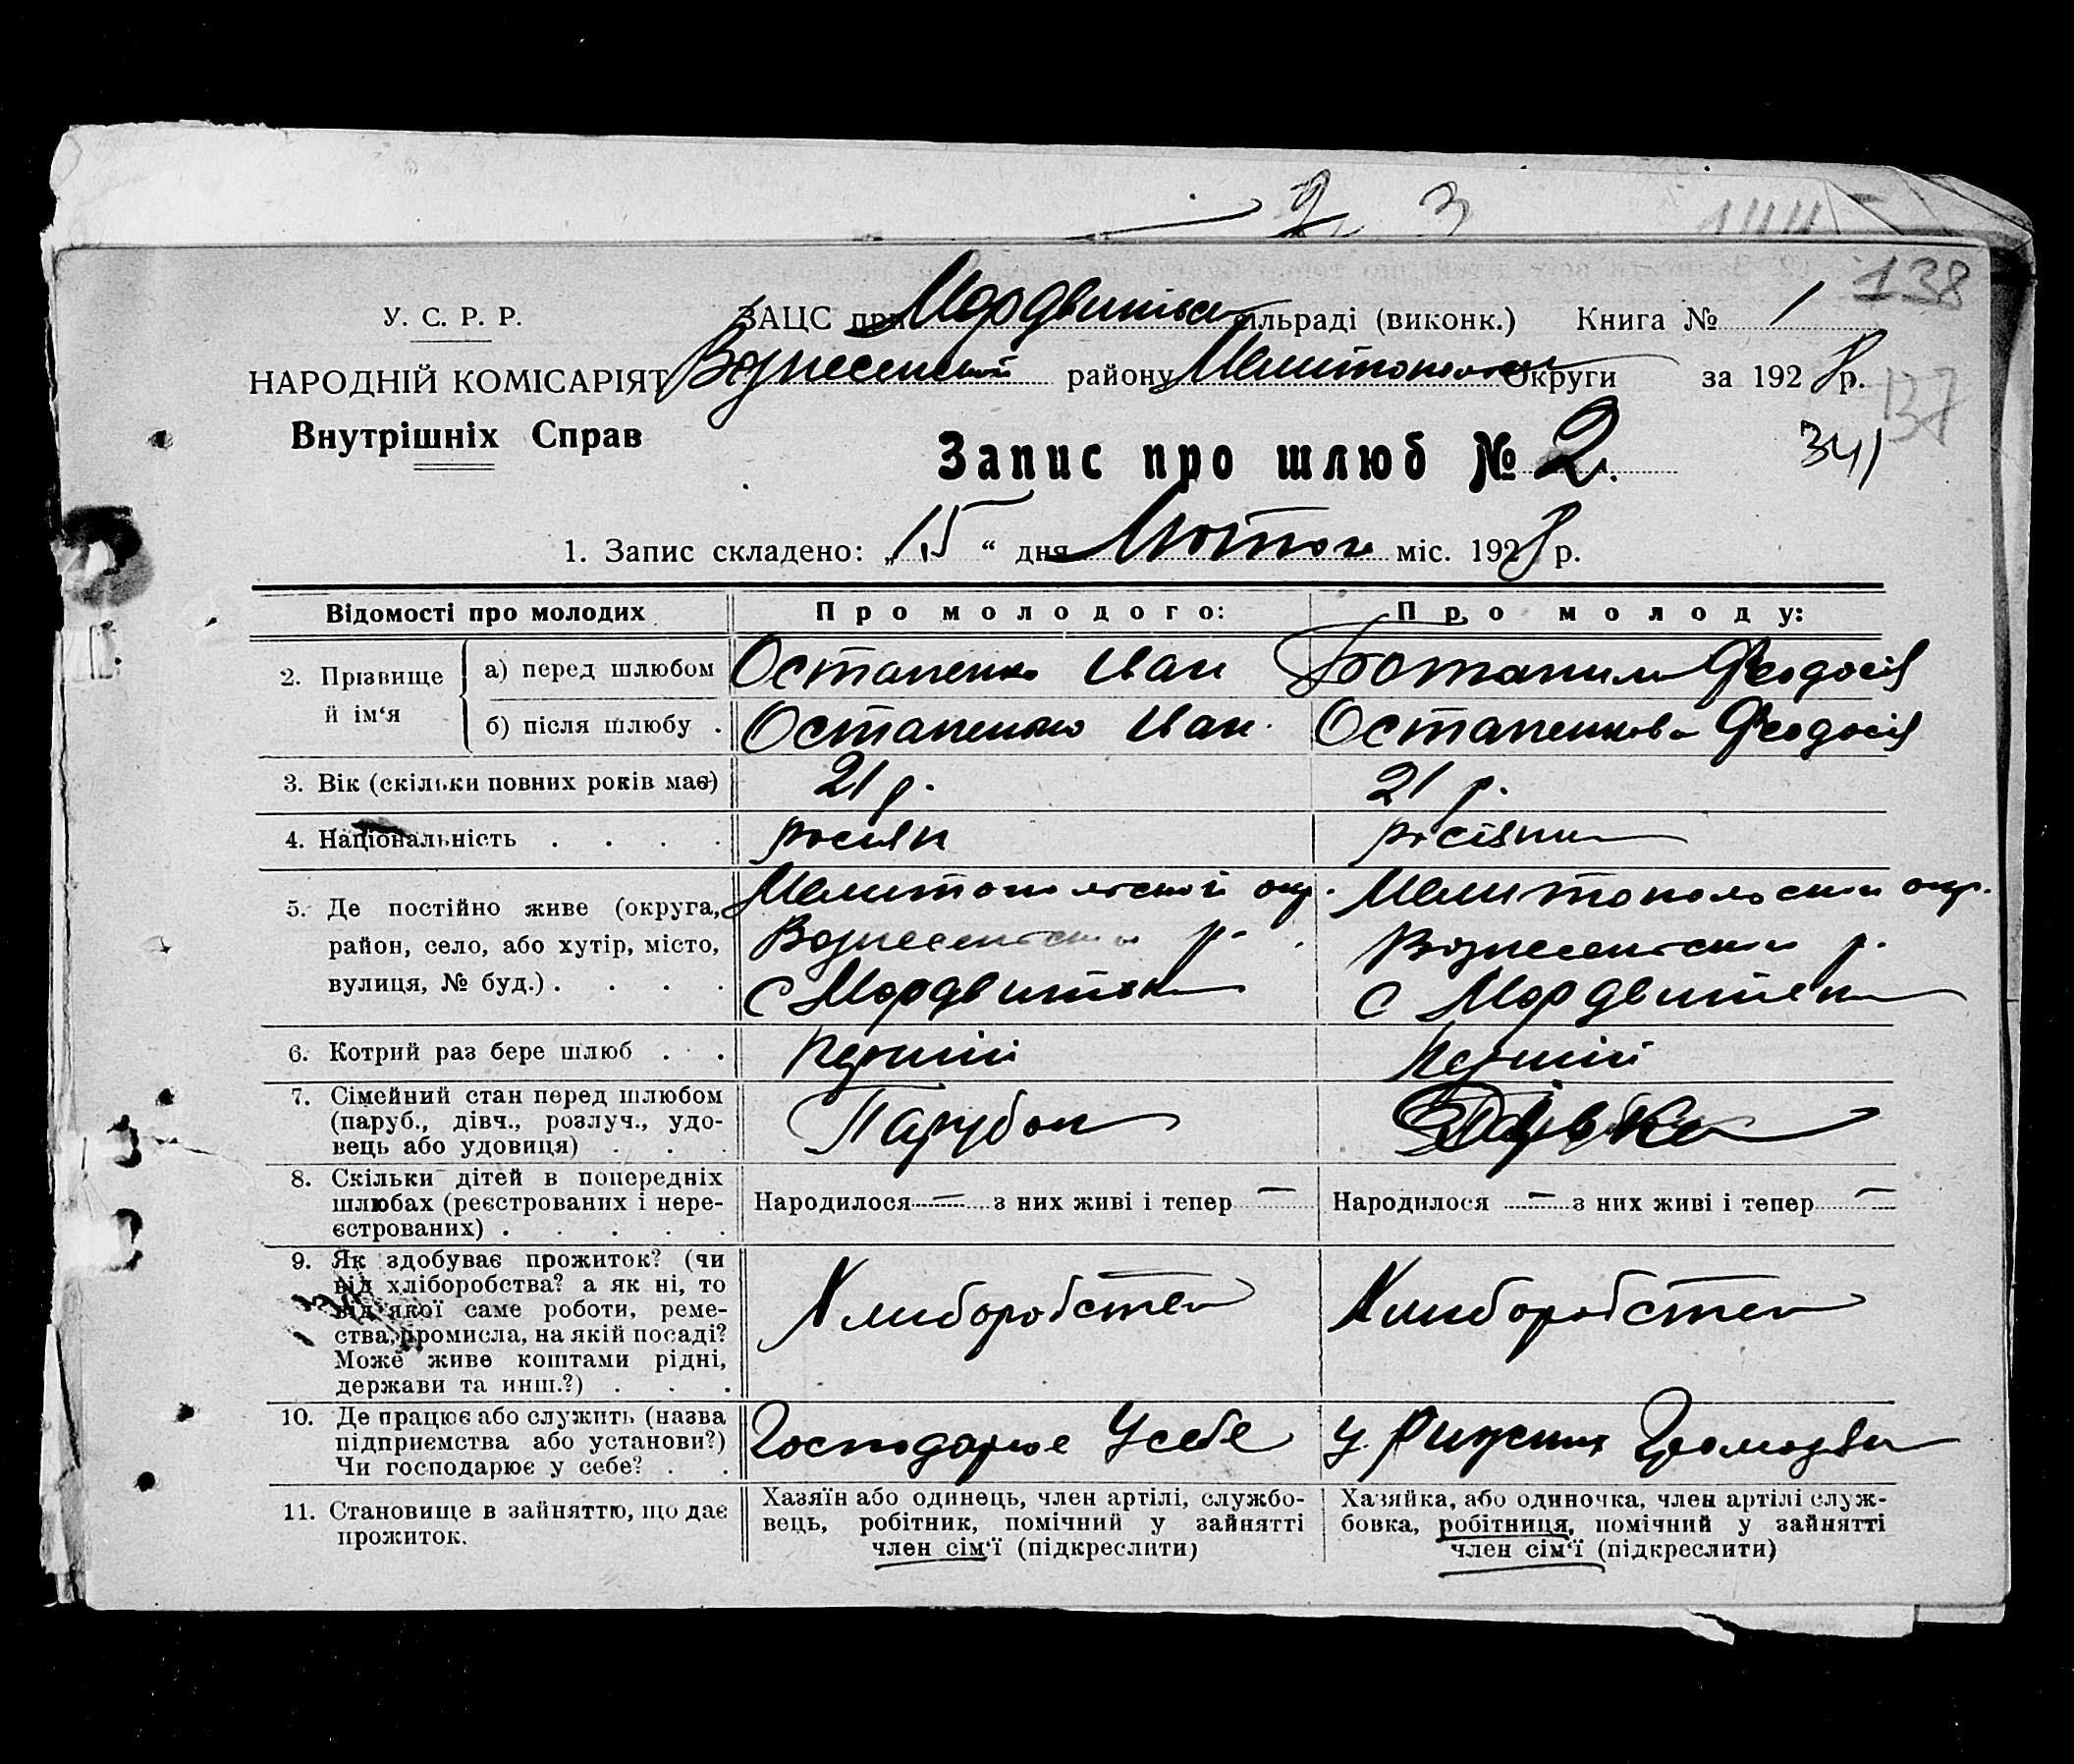 2 3 144
138
У. С. Р. Р. ЗАЦС при Мордвинівск сільраді (виконк.) Книга № 1
НАРОДНІЙ КОМІСАРІЯТ Вознесенской району Мелитопольск Округи за 1928 р.
137
Внутрішніх Справ
Запис про шлюб № 2.
341
1. Запис складено: „15“ дня Лютого міс. 1928 р.
Відомості про молодих Про молодого: Про молоду:
2. Прізвище й ім‘я
а) перед шлюбом Остапенко Иван Феодосія
б) після шлюбу . Остапенько Иван. Остапенкова Феодосія
3. Вік (скільки повних років має) 21 р. 21 р.
4. Національність . . . . росиян росіянка
5. Де постійно живе (округа, Мелитопольской окр. Мелитопольской окр.
район, село, або хутір, місто, Вознесенским р. Вознесенским р.
вулиця, № буд.) . . . . с Мордвиновка с Мордвиновка
6. Котрий раз бере шлюб . . Перший Перший
7. Сімейний стан перед шлюбом
(паруб., дівч., розлуч., удо-
вець або удовиця) . . . Парубок Дівка
8. Скільки дітей в попередніх
шлюбах (реєстрованих і нере-
єстрованих) . . . . . Народилося — з них живі і тепер — Народилося — з них живі і тепер —
9. Як здобуває прожиток? (чи
від хліборобства? а як ні, то
від якої саме роботи, реме-
ства, промисла, на якій посаді?
Може живе коштами рідні,
держави та инш.?) . . . Хлиборобство Хлиборобство
10. Де працює або служить (назва
підприємства або установи?)
Чи господарює у себе? . . Господарює У себе у
11. Становище в зайняттю, що дає
прожиток.
Хазяїн або одинець, член артілі, службо-
вець, робітник, помічний у зайнятті
член сім‘ї (підкреслити)
Хазяйка, або одиночка, член артілі служ-
бовка, робітниця, помічний у зайнятті
член сім‘ї (підкреслити)